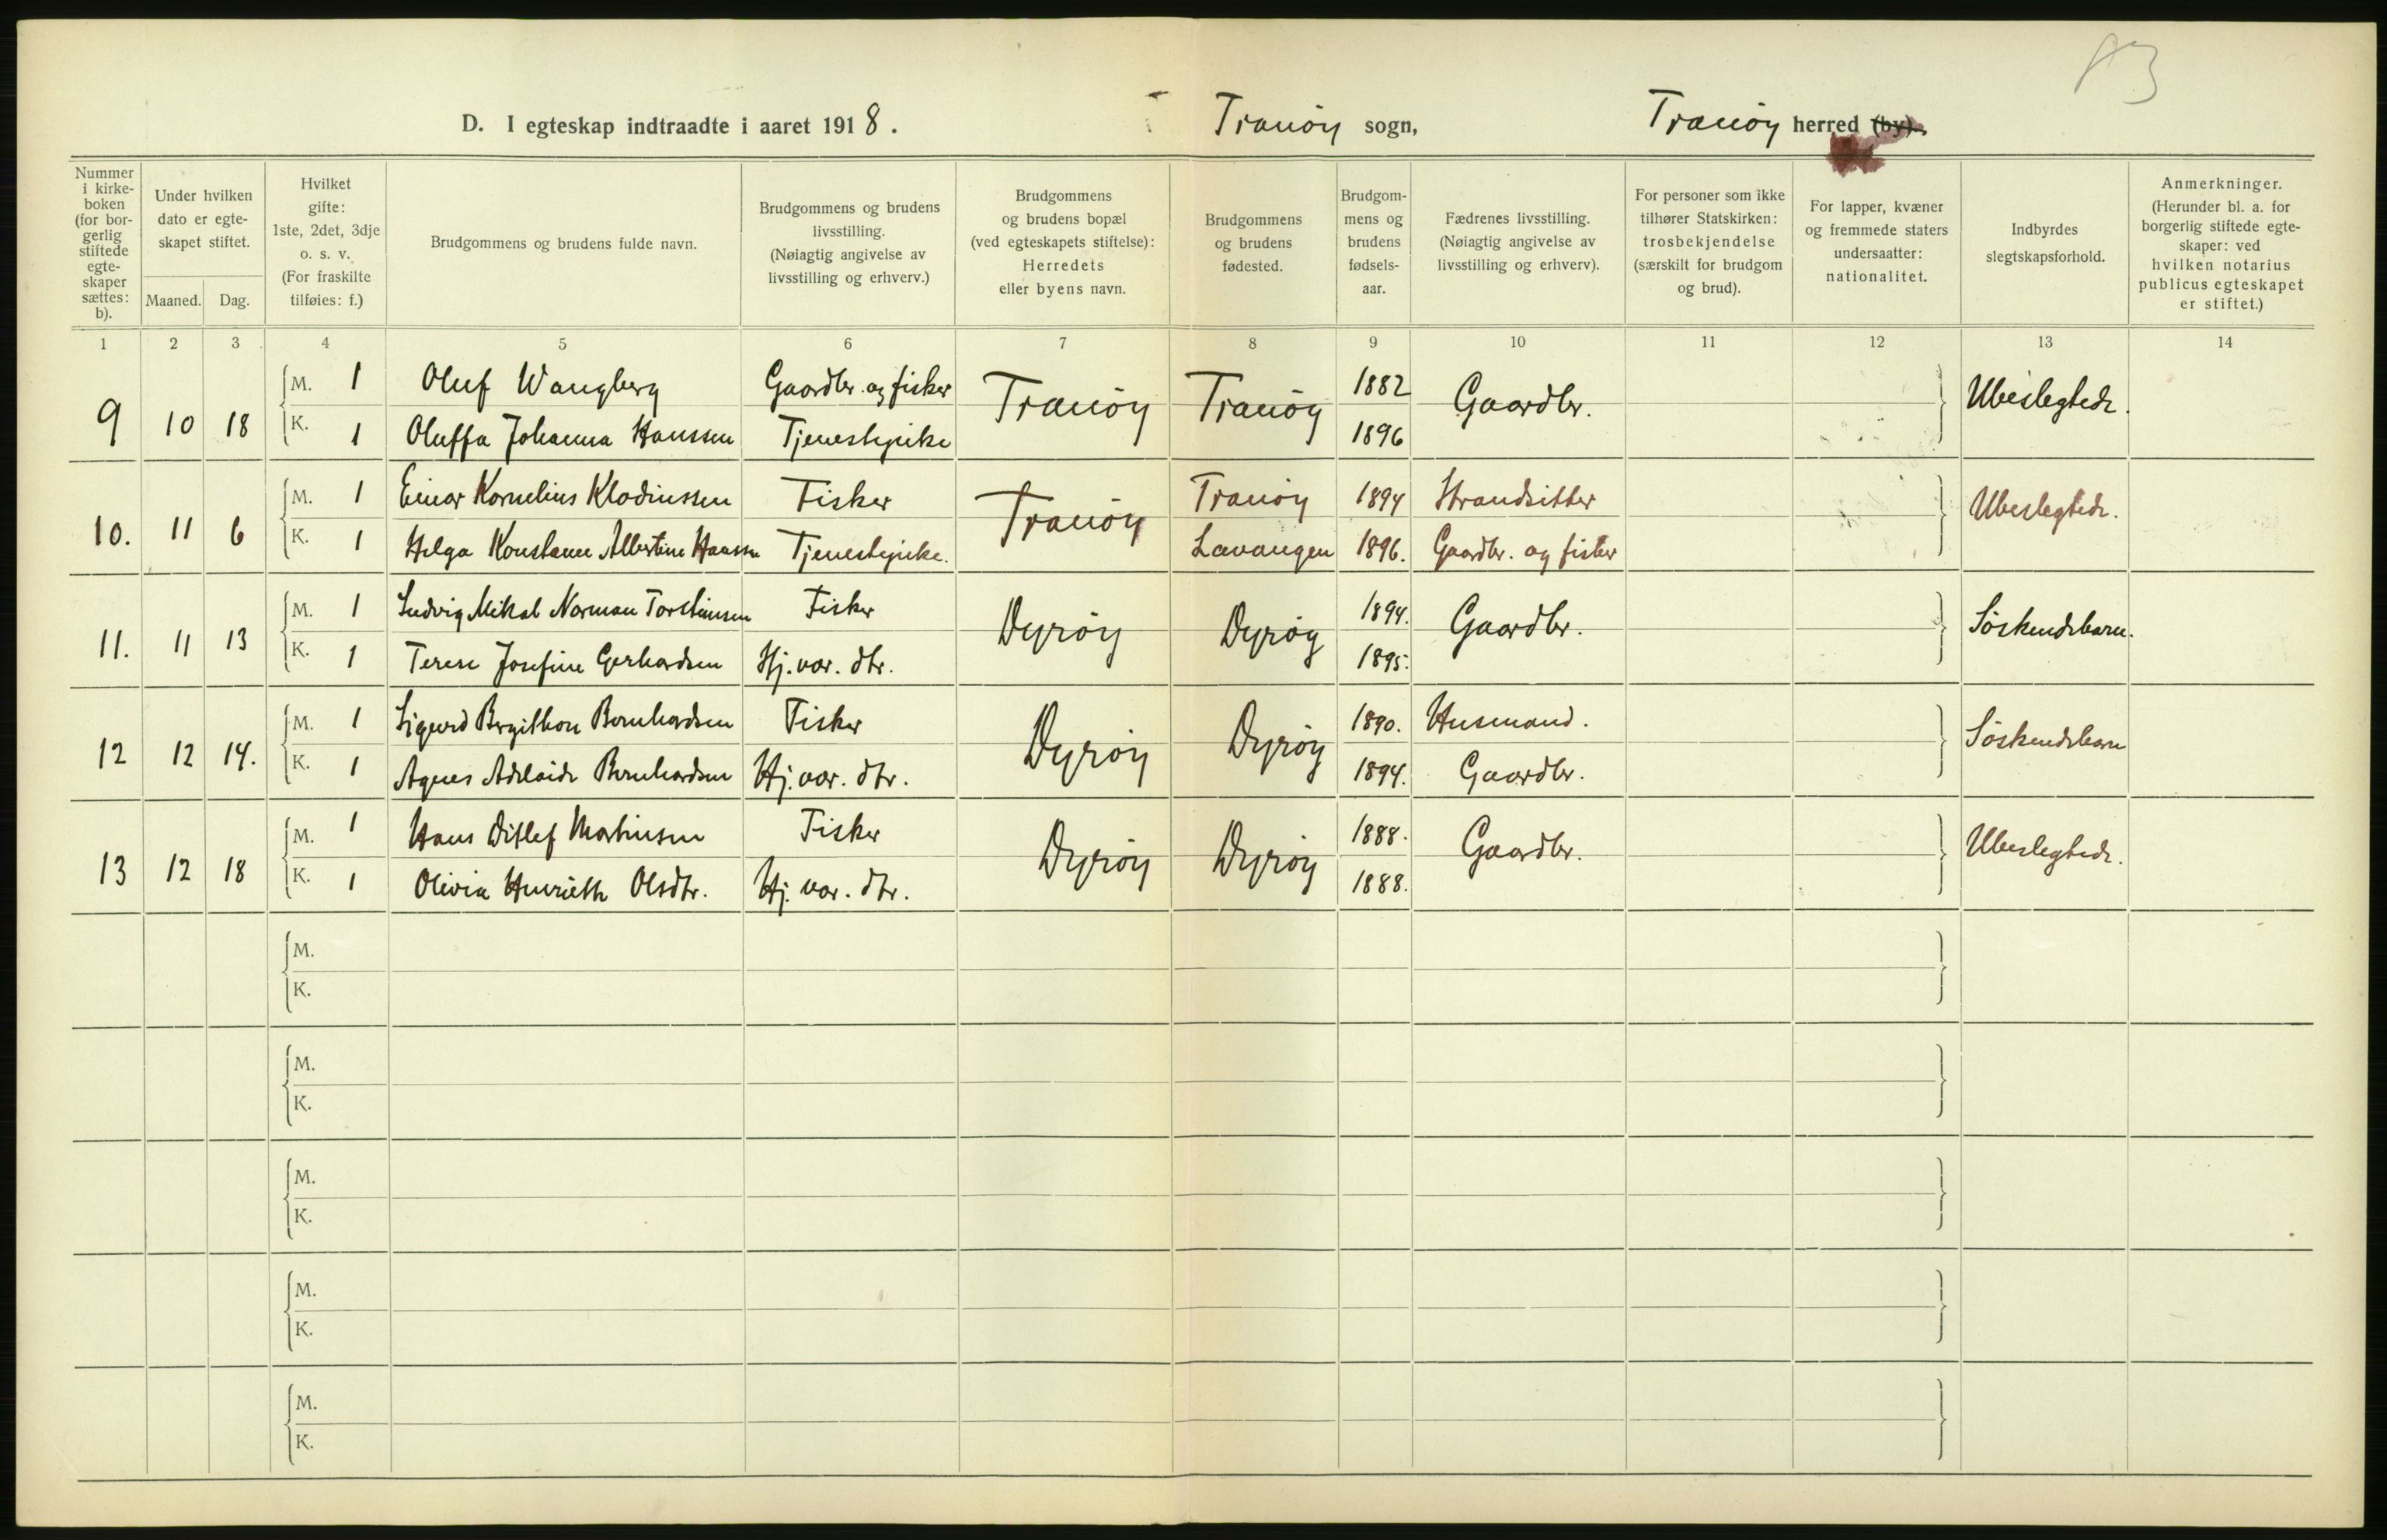 83
D. I egteskap indtraadte i aaret 1918. Tranöy sogn, Tranöy herred (by).
Nummer i kirkeboken (for borgerlig stiftede egteskaper sættes: b).
Under hvilken dato er egteskapet stiftet.
Maaned. Dag.
Hvilket gifte: 1ste, 2det, 3dje o. s. v. (For fraskilte tilføies: f.)
Brudgommens og brudens fulde navn.
Brudgommens og brudens livsstilling. (Nøiagtig angivelse av livsstilling og erhverv.)
Brudgommens og brudens bopæl (ved egteskapets stiftelse): Herredets eller byens navn.
Brudgommens og brudens fødested.
Brudgommens og brudens fødselsaar.
Fædrenes livsstilling. (Nøiagtig angivelse av livsstilling og erhverv).
For personer som ikke tilhører Statskirken: trosbekjendelse (særskilt for brudgom og brud).
For lapper, kvæner og fremmede staters undersaatter: nationalitet.
Indbyrdes slegtskapsforhold.
Anmerkninger. (Herunder bl. a. for borgerlig stiftede egteskaper: ved hvilken notarius publicus egteskapet er stiftet.)
1 2 3 4 5 6 7 8 9 10 11 12 13 14
M. 1 Oluf Wangberg Gaardbr. og fisker Tranöy Tranöy 1882 Gaardbr. Ubeslegtede.
9 10 18 K. 1 Oluffa Johanna Hanssen Tjenestepike 1896
M. 1 Einar Kornelius Klodiussen Fisker Tranöy Tranöy 1894 Strandsitter Ubeslegtede.
10. 11 6 K. 1 Helga Konstanse Albertine Hanssen Tjenestepike. Lavangen 1896. Gaardbr. og fisker
M. 1 Ludvig Mikal Norman Torsteinsen Fisker Dyröy Dyröy 1894. Gaardbr. Söskendebarn.
11. 11 13 K. 1 Terese Josefine Gerhardsen Hj. vær. dtr. 1895.
M. 1 Sigurd Bergithon Bernhardsen Fisker Dyröy Dyröy 1890. Husmand. Söskendebarn
12 12 14. K. 1 Agnes Adelaide Bernhardsen Hj. vær. dtr. 1894. Gaardbr.
M. 1 Hans Ditlef Martinsen Fisker Dyröy Dyröy 1888. Gaardbr. Ubeslegtede.
13 12 18 K. 1 Olivia Henriette Olsdtr. Hj. vær. dtr. 1888.
M.
K.
M.
K.
M.
K.
M.
K.
M.
K.